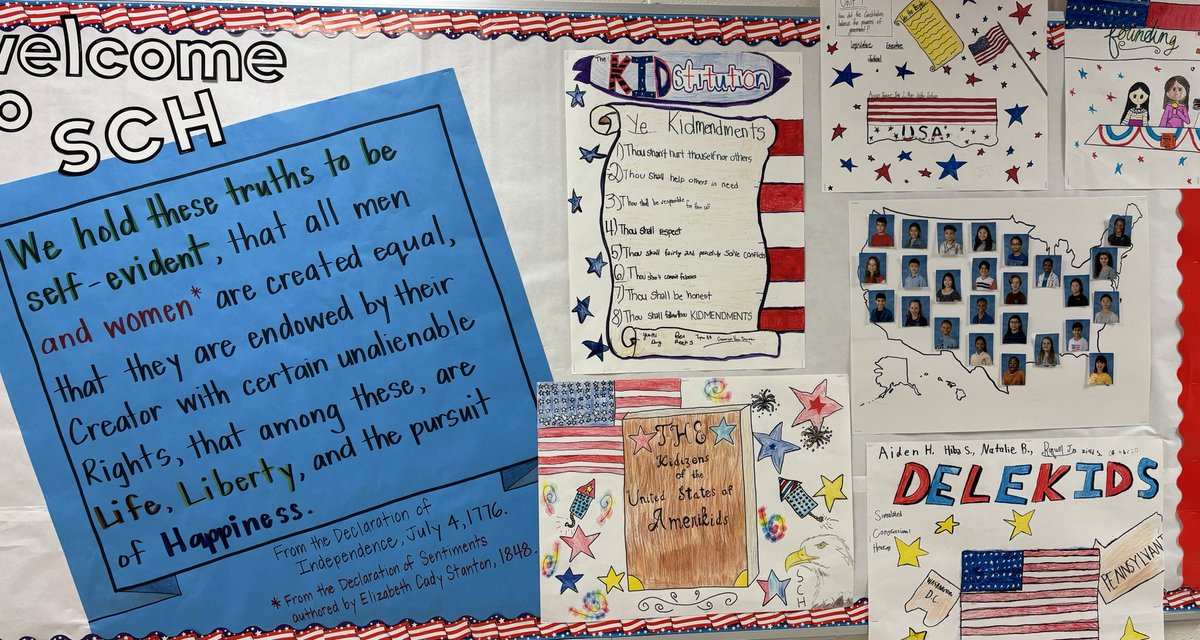 welcome
SCH
We hold these truths to be
self-evident, that all men
and women* are created equal,
that they are endowed by their
Creator with certain unalienable
Rights, that among these, are
Life, Liberty, and the pursuit
of Happiness.
From the Declaration of
Independence, July 4, 1776.
* From the Declaration of Sentiments
authored by Elizabeth Cady Stanton, 1848.
The KIDstitution
Ye Kidmendments
1) Thou shan't hurt thouself nor others
2) Thou shall help others in need
3) Thou shall be responsible for thou self
4) Thou shall respect
5) Thou shall fairly and peacefully solve conflicts
6) Thou shan't commit
7) Thou shall be honest
8) Thou shall follow thou KIDMENDMENTS
THE
Kidizens
of the
United States of
Amerikids
SCH
UNIT
How did the Constitution
balance the powers of
government?
We the People
Legislative Executive
Judicial
USA
founding
Aiden H, Hiba S., Natalie B., Raquel J.
DELEKIDS
Simulated
Congressional
Hearing
Washington
D.C
PENNSYLVANI